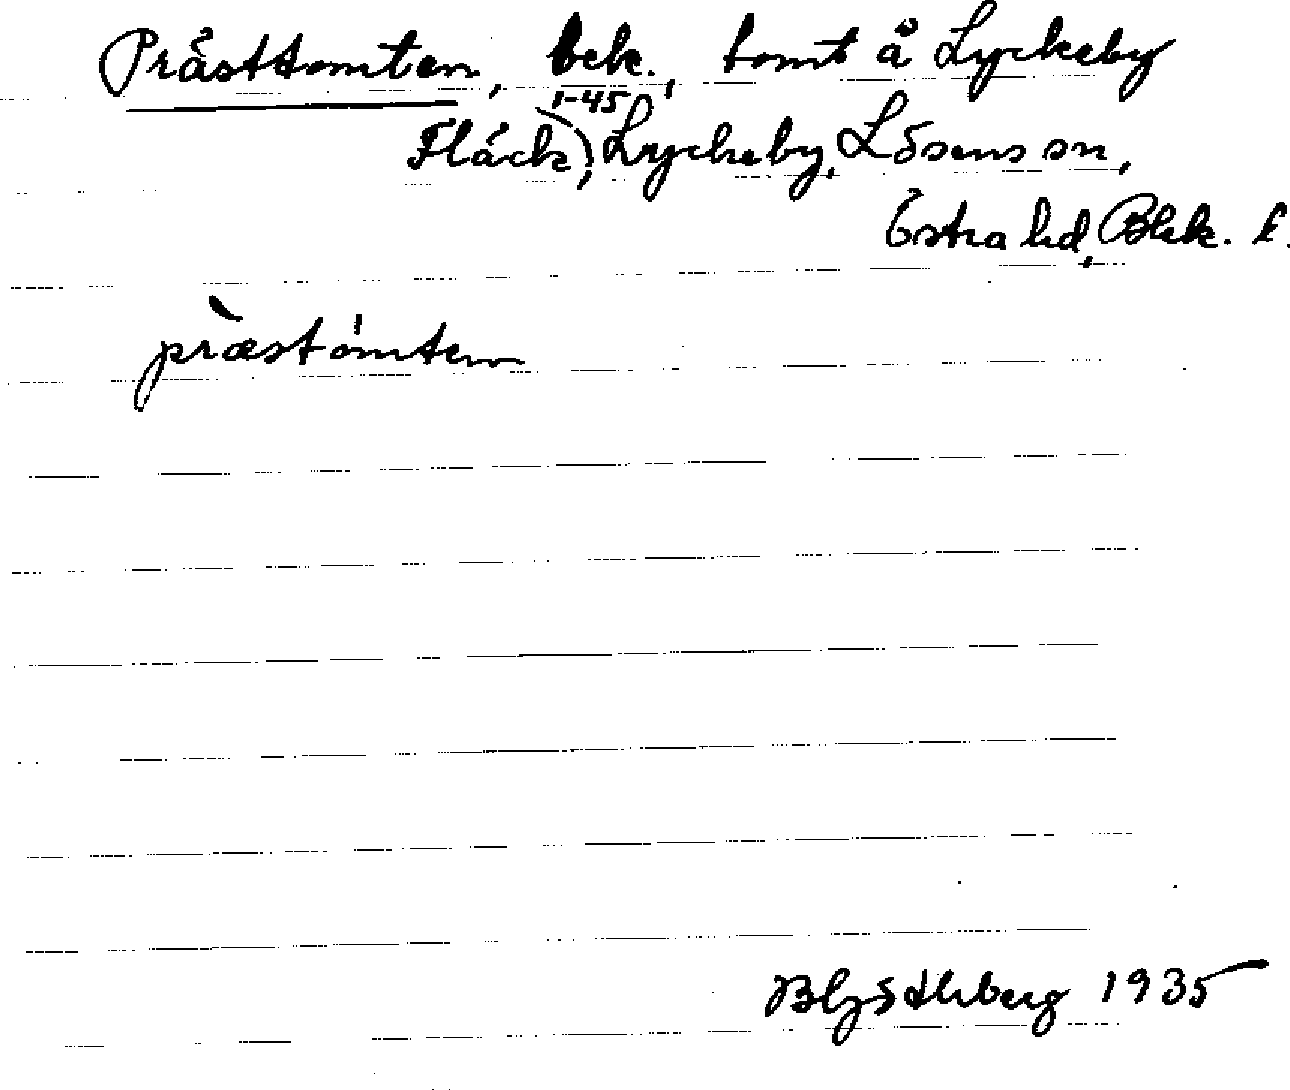 Prästtomten, bek., tomt å Lyckeby
1-45
Fläck), Lyckeby, Lösens sn,
Östra hd, Blek. l.
præstómten
1935